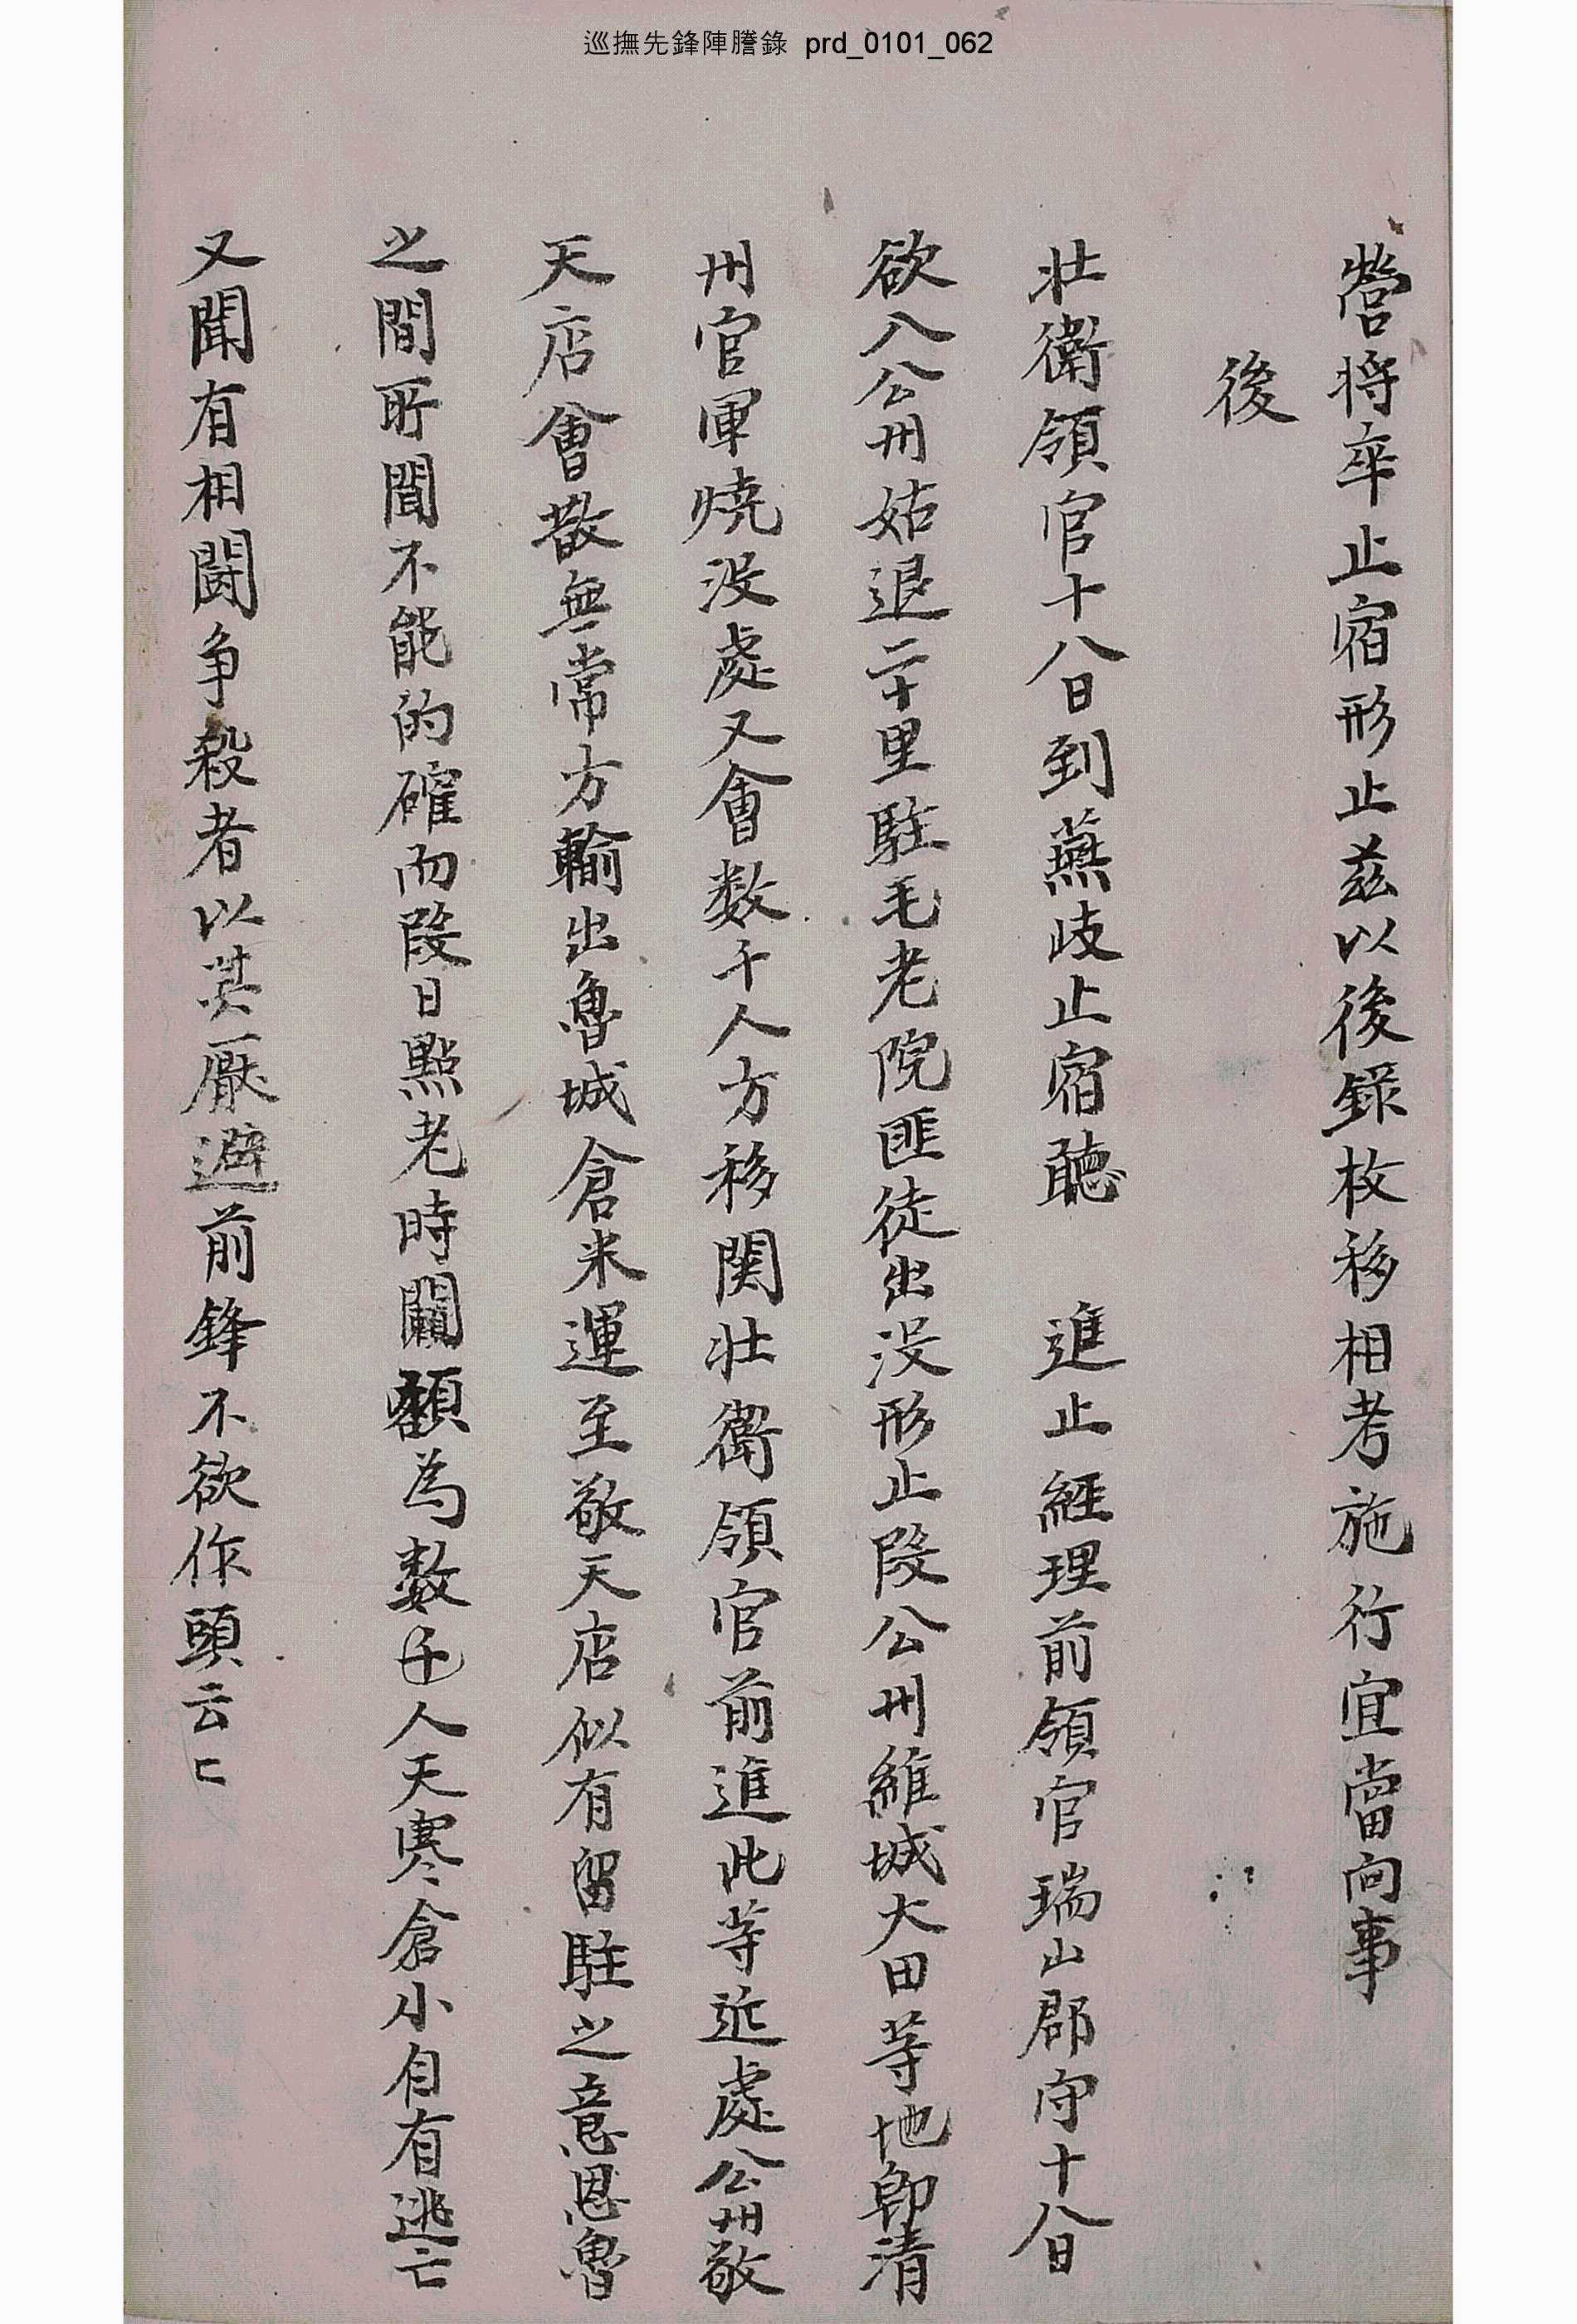 巡撫先鋒陣謄錄 prd_0101_062
營將卒止宿形止玆以後錄枚移相考施行宜當向事
後
壯衛領官十八日到燕歧止宿聽 進止經理前領官瑞山郡守十八日
欲入公州姑退二十里駐毛老院匪徒出沒形止段公州維城大田等地卽淸
州官軍燒沒處又會数千人方移関壯衛領官前進此等近處公州敬
天店會散無常方輸出魯城倉米運至敬天店似有留駐之意恩魯
之間所聞不能的確而段日點老時闕額爲数千人天寒倉小自有逃亡
又聞有相鬪爭殺者以其厭避前鋒不欲作頭云〻